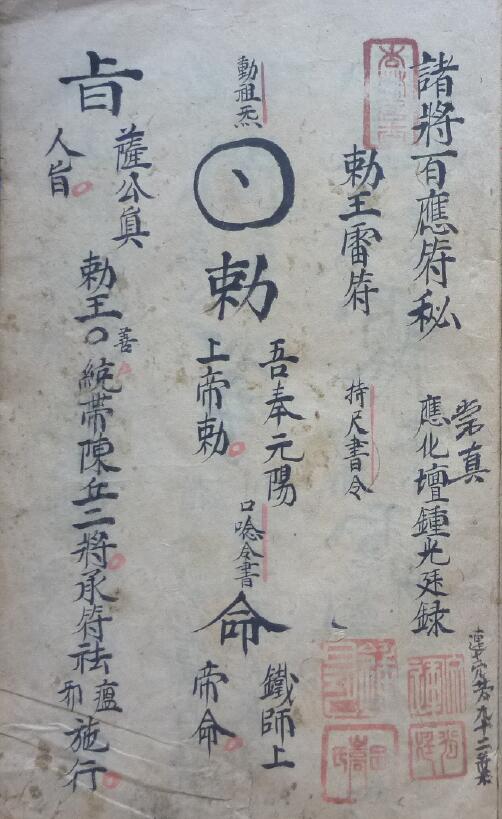 諸將百應符秘
崇真
應化壇鍾光廷録
勅王雷符
持尺書令
動祖炁
勅
吾奉元陽
上帝勅
口唸令書
命
鐵師上
帝命
旨
薩公真
人旨
勅王〇善統帶陳丘二將承符祛瘟邪施行